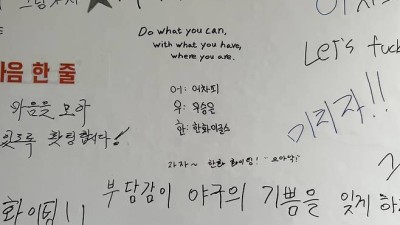 Do what you can,
with what you have,
where you are.
Let's fuck
마음 한 줄
마음을 모아
있도록 팟팅합시다!
어: 어차피
우: 우승은
한: 한화이글스
이리자!!
가자~ 한화 화이팅!
부담감이 야구의 기쁨을 잊게 하
화이팅!!